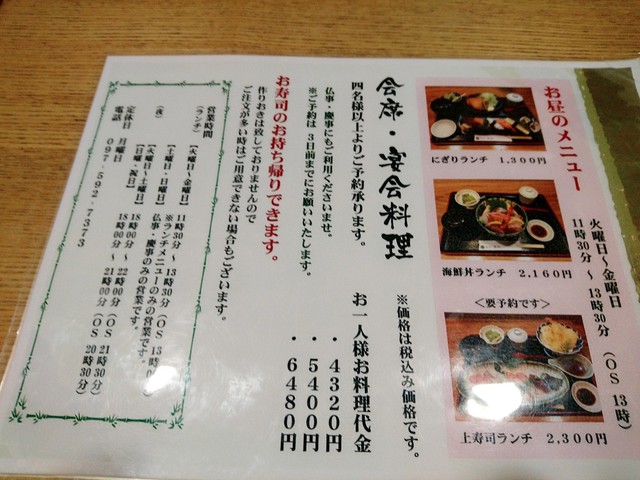 お昼のメニュー
火曜日～金曜日
11時30分～13時30分
（OS 13時）
にぎりランチ 1,300円
海鮮丼ランチ 2,160円
＜要予約です＞
上寿司ランチ 2,300円
※価格は税込み価格です。
会席・宴会料理
四名様以上よりご予約承ります。
お一人様お料理代金
・4320円
・5400円
・6480円
仏事・慶事にもご利用くださいませ。
※ご予約は3日前までにお願いいたします。
お寿司のお持ち帰りできます。
作りおきは致しておりませんので
ご注文が多い時はご用意できない場合もございます。
営業時間
（ランチ）
【火曜日～金曜日】
11時30分～13時30分（OS 13時）
※ランチメニューのみの営業です。
【土曜日・日曜日】
仏事・慶事のみの営業です。
（夜）
【火曜日～土曜日】
18時00分～22時00分（OS 21時30分）
【日曜・祝日】
18時00分～21時00分（OS 20時30分）
定休日 月曜日
電話 097-592-7373